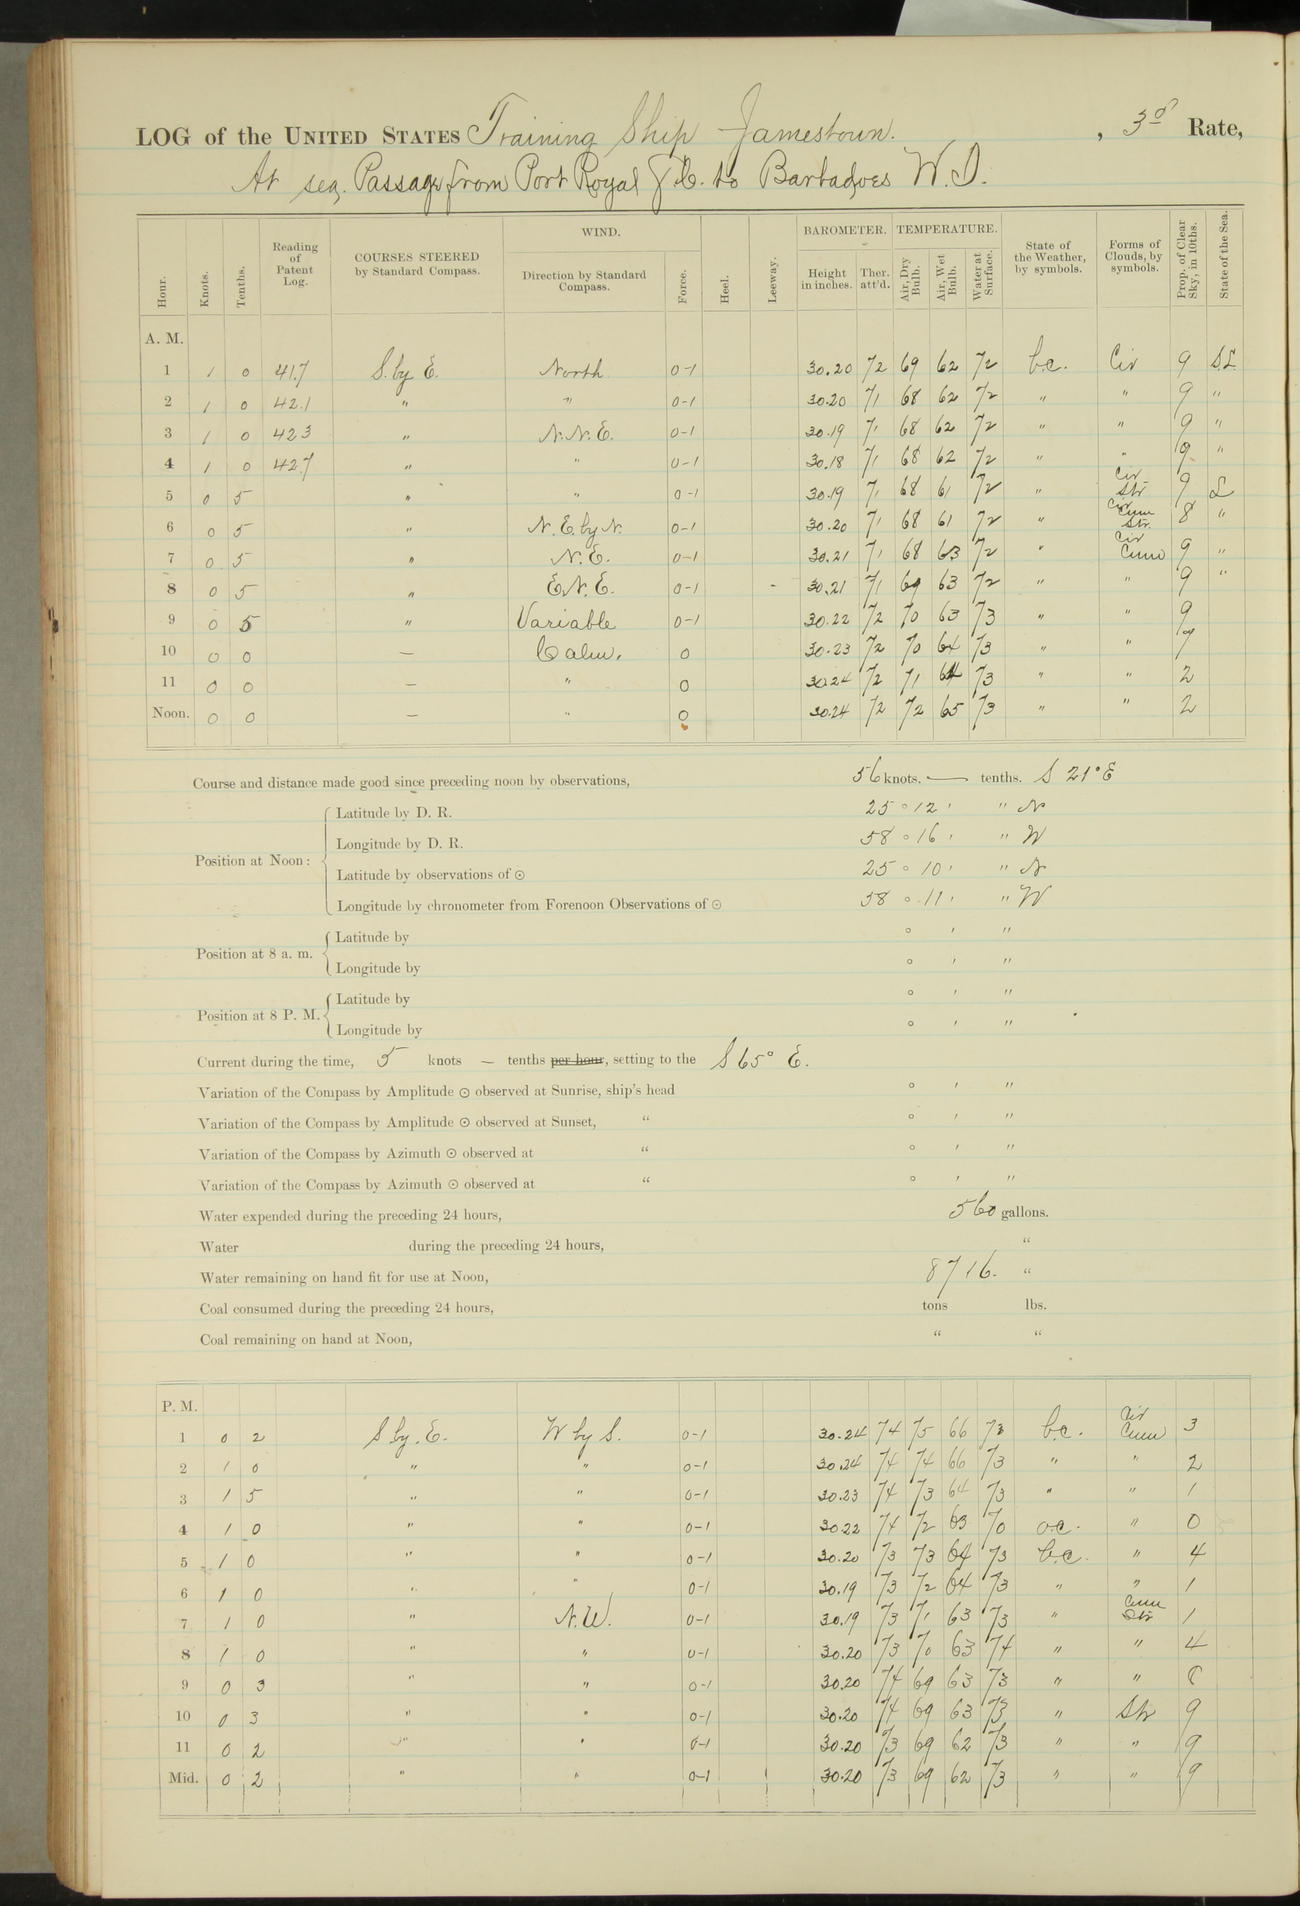 LOG of the UNITED STATES Training Ship Jamestown. , 3d Rate,
At sea, Passage from Port Royal S.C. to Barbadoes W.I.
Hour. Knots. Tenths. Reading of Patent Log. COURSES STEERED by Standard Compass. WIND. Direction by Standard Compass. Force. Heel. Leeway. BAROMETER. Height in inches. Ther. att'd. TEMPERATURE. Air, Dry Bulb. Air, Wet Bulb. Water at Surface. State of the Weather, by symbols. Forms of Clouds, by symbols. Prop. of Clear Sky, in 10ths. State of the Sea.
A. M.
1 1 0 41.7 S. by E. North 0-1 30.20 72 69 62 72 b.c. Cir 9 S.L.
2 1 0 42.1 " " 0-1 30.20 71 68 62 72 " " 9 "
3 1 0 42.3 " N.N.E. 0-1 30.19 71 68 62 72 " " 9 "
4 1 0 42.7 " " 0-1 30.18 71 68 62 72 " " 9 "
5 0 5 " " 0-1 30.19 71 68 61 72 " Cir Str 9 L
6 0 5 " N.E. by N. 0-1 30.20 71 68 61 72 " Cir Cum Str. 8 "
7 0 5 " N.E. 0-1 30.21 71 68 63 72 " Cir Cum 9 "
8 0 5 " E.N.E. 0-1 - 30.21 71 69 63 72 " " 9 "
9 0 5 " Variable 0-1 30.22 72 70 63 73 " " 9
10 0 0 — Calm. 0 30.23 72 70 64 73 " " 7
11 0 0 — " 0 30.24 72 71 64 73 " " 2
Noon. 0 0 — " 0 30.24 72 72 65 73 " " 2
Course and distance made good since preceding noon by observations, 56 knots. — tenths. S 21° E
Position at Noon:
Latitude by D. R. 25 ° 12 ' " N
Longitude by D. R. 58 ° 16 ' " W
Latitude by observations of ☉ 25 ° 10 ' " N
Longitude by chronometer from Forenoon Observations of ☉ 58 ° 11 ' " W
Position at 8 a. m.
Latitude by ° ' "
Longitude by ° ' "
Position at 8 P. M.
Latitude by ° ' "
Longitude by ° ' "
Current during the time, 5 knots — tenths per hour, setting to the S 65° E.
Variation of the Compass by Amplitude ☉ observed at Sunrise, ship's head ° ' "
Variation of the Compass by Amplitude ☉ observed at Sunset, " ° ' "
Variation of the Compass by Azimuth ☉ observed at " ° ' "
Variation of the Compass by Azimuth ☉ observed at " ° ' "
Water expended during the preceding 24 hours, 560 gallons.
Water during the preceding 24 hours, "
Water remaining on hand fit for use at Noon, 8716. "
Coal consumed during the preceding 24 hours, tons lbs.
Coal remaining on hand at Noon, " "
P. M.
1 0 2 S. by. E. W by S. 0-1 30.24 74 75 66 73 b.c. Cir Cum 3
2 1 0 " " 0-1 30.24 74 74 66 73 " " 2
3 1 5 " " 0-1 30.23 74 73 64 73 " " 1
4 1 0 " " 0-1 30.22 74 72 63 70 o.c. " 0
5 1 0 " " 0-1 30.20 73 73 64 73 b.c. " 4
6 1 0 " " 0-1 30.19 73 72 64 73 " " 1
7 1 0 " N.W. 0-1 30.19 73 71 63 73 " Cum Str 1
8 1 0 " " 0-1 30.20 73 70 63 74 " " 4
9 0 3 " " 0-1 30.20 74 69 63 73 " "
10 0 3 " " 0-1 30.20 74 69 63 73 " Str 9
11 0 2 " " 0-1 30.20 73 69 62 73 " " 9
Mid. 0 2 " " 0-1 30.20 73 69 62 73 " " 9